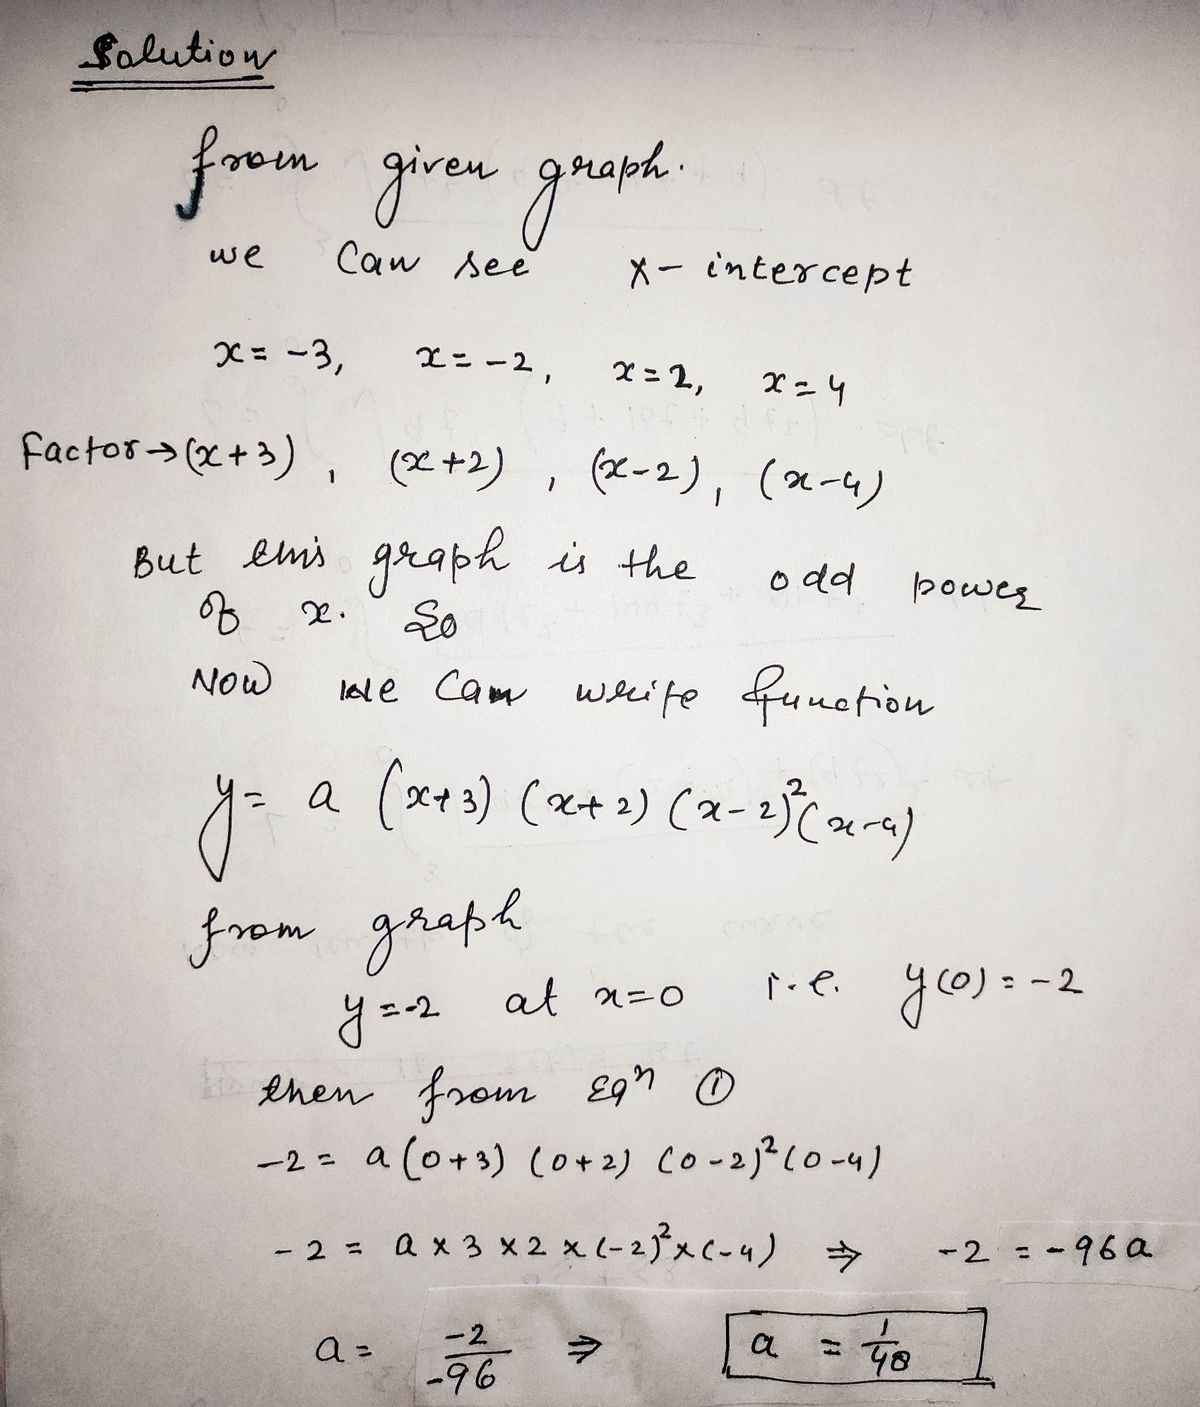 Solution
from given graph.
we can see x-intercept
x = -3, x = -2, x = 2, x = 4
Factor → (x+3), (x+2), (x-2), (x-4)
But this graph is the odd power
of x. So
Now we can write function
y = a (x+3) (x+2) (x-2)²(x-4)
from graph
y = -2 at x=0 i.e. y(0) = -2
then from Eqⁿ ①
-2 = a(0+3) (0+2) (0-2)²(0-4)
-2 = a x 3 x 2 x (-2)² x (-4) ⇒ -2 = -96a
a = -2/-96 ⇒ a = 1/48